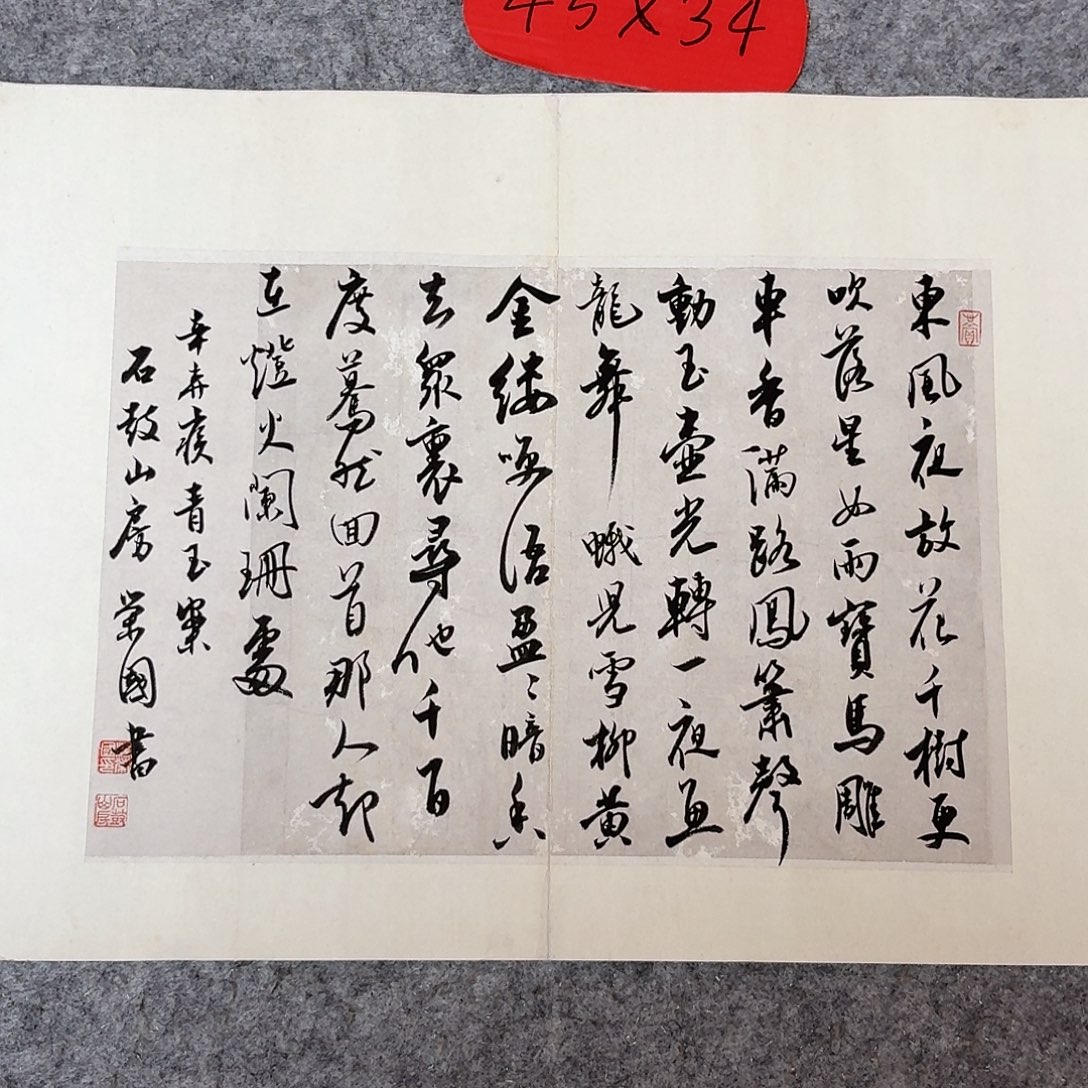 45X34
東風夜放花千樹更
吹落星如雨寶馬雕
車香滿路鳳簫聲
動玉壺光轉一夜魚
龍舞 蛾兒雪柳黃
金縷咲語盈〻暗香
去眾裏尋他千百
度驀然回首那人却
在燈火闌珊處
辛弃疾青玉案
石鼓山房榮國書